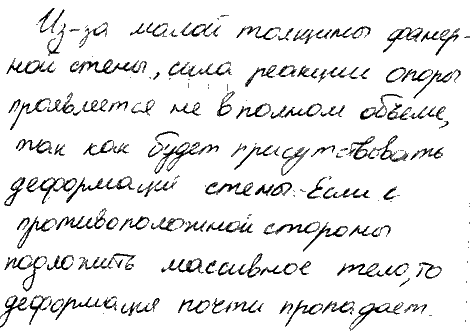 Из-за малой толщины фанер-
ной стены, сила реакции опоры
проявляется не в полном объеме,
так как будет присутствовать
деформаций стены. Если с
противоположной стороны
подложить массивное тело, то
деформация почти пропадает.